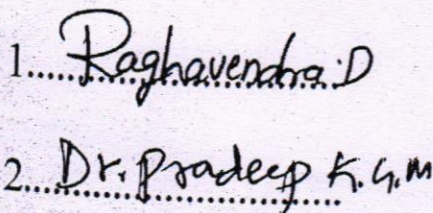 1. Raghavendra.D
2. Dr. Pradeep K.G.M